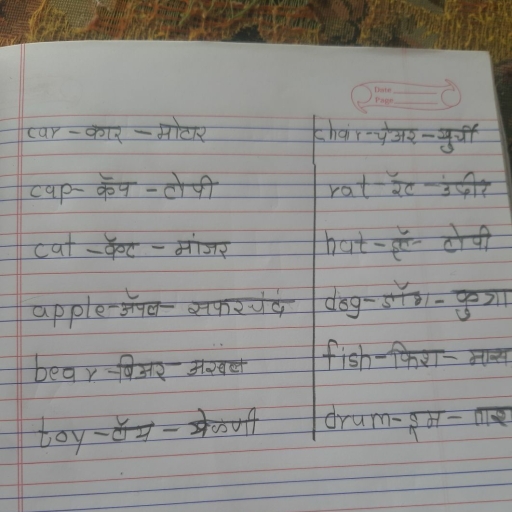 Date
Page
car - कार - मोटार
chair - चेअर - खुर्ची
cap - कॅप - टोपी
rat - रॅट - उंदीर
cat - कॅट - मांजर
hat - हॅ - टोपी
apple - ॲपल - सफरचंद
dog - डॉग - कुत्रा
bear - बिअर - अस्वल
fish - फिश - मास
toy - टॉय - खेळणी
drum - ड्रम